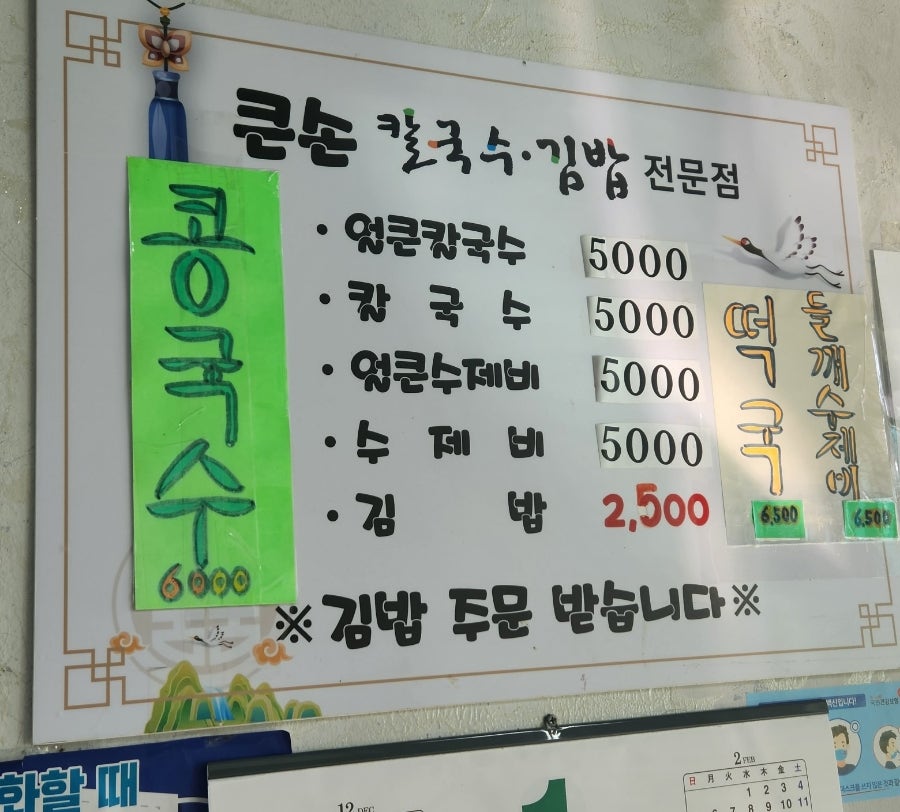 큰손 칼국수·김밥 전문점
콩국수
6000
· 얼큰칼국수 5000
· 칼국수 5000
· 얼큰수제비 5000
· 수제비 5000
· 김밥 2,500
떡국
6,500
들깨수제비
6,500
※김밥 주문 받습니다※
화할 때
12 DEC
1
2 FEB
日 月 火 水 木 金 土
1 2 3 4
6 7 8 9 10 11